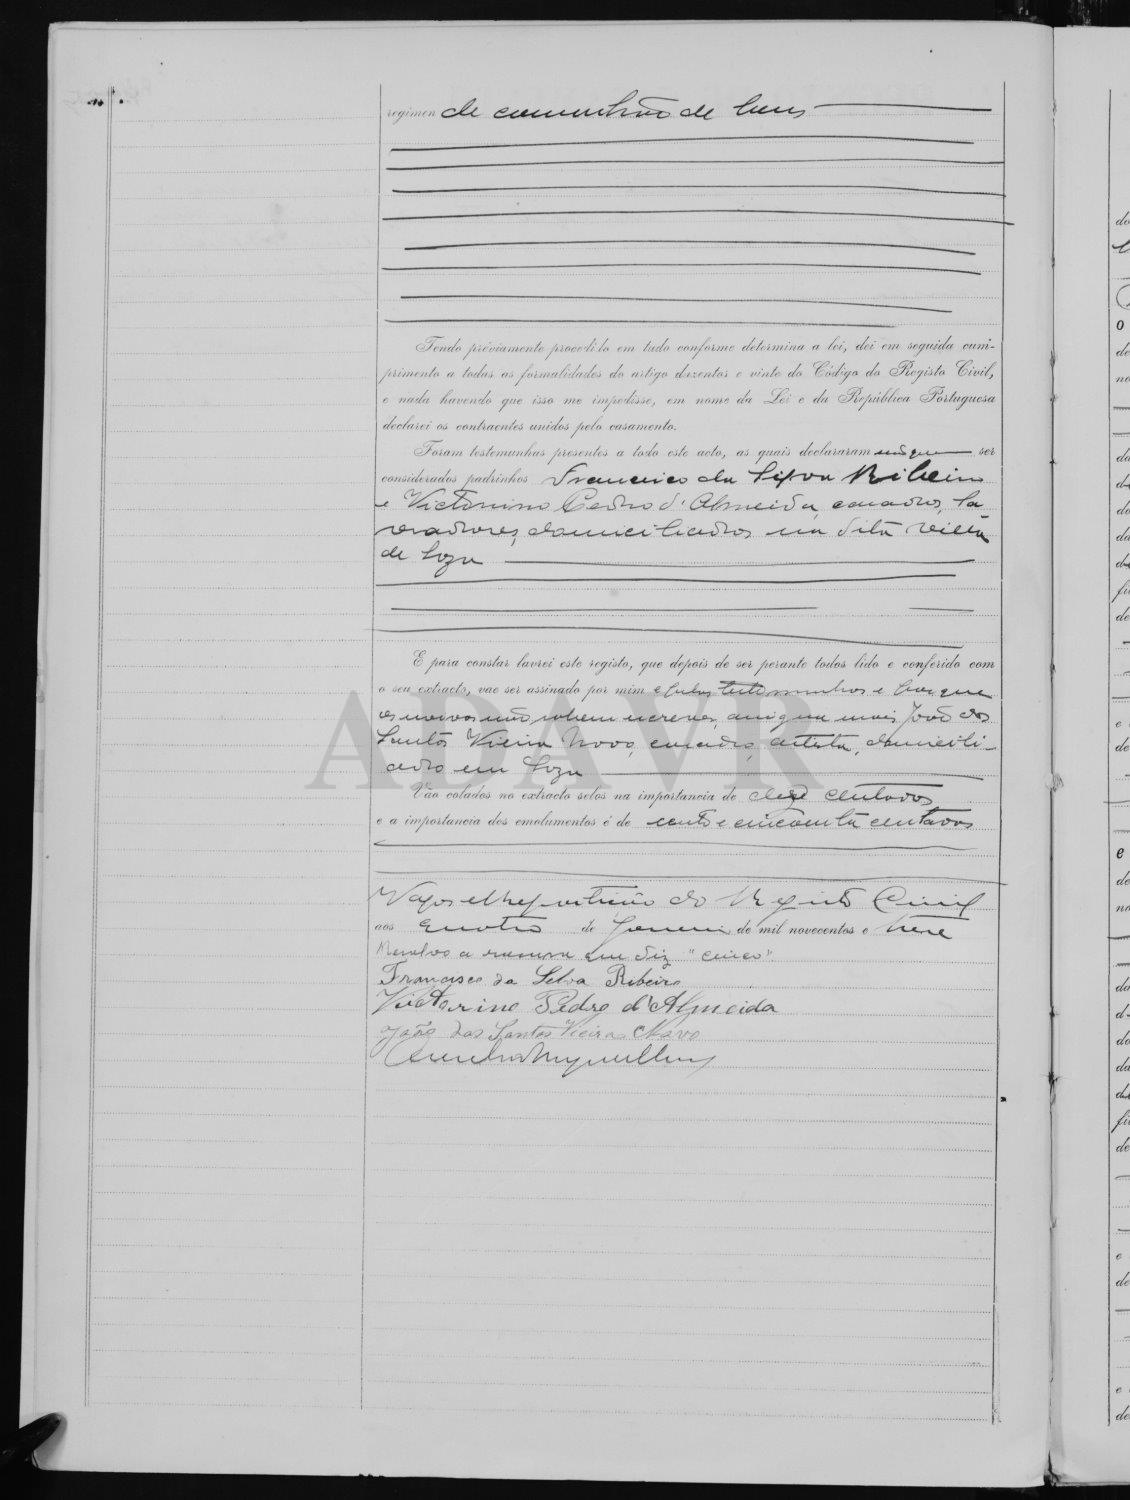 regimen de comunhão de bens
Tendo préviamente procedido em tudo conforme determina a lei, dei em seguida cum-
primento a todas as formalidades do artigo duzentos e vinte do Código do Registo Civil,
e nada havendo que isso me impedisse, em nome da Lei e da República Portuguesa
declarei os contraentes unidos pelo casamento.
Foram testemunhas presentes a todo este acto, as quais declararam ser
considerados padrinhos Francisco da Silva Ribeiro
e Victorino Pedro d'Almeida, casados, la
vradores, domiciliados na dita villa
de Soza
E para constar lavrei este registo, que depois de ser perante todos lido e conferido com
o seu extracto, vae ser assinado por mim e pelas testemunhas e porque
os noivos não sabem escrever, assigna mais João dos
Santos Vieira Novo, casado, artista, domicili-
ado em Soza
Vão colados no extracto selos na importancia de centavos
e a importancia dos emolumentos é de cento e cincoenta centavos
Vagos e Repartição do Registo Civil
aos quatro de Janeiro de mil novecentos e treze
Resalvo a rasura que diz "cinco".
Francisco da Selva Ribeiro
Victorino Pedro d'Almeida
João dos Santos Vieira Novo
ADAVR